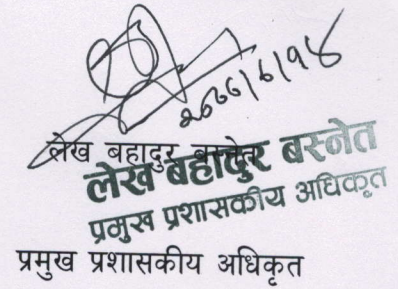 २०७७।६।१४
लेख बहादुर बस्नेत
लेख बहादुर बस्नेत
प्रमुख प्रशासकीय अधिकृत
प्रमुख प्रशासकीय अधिकृत